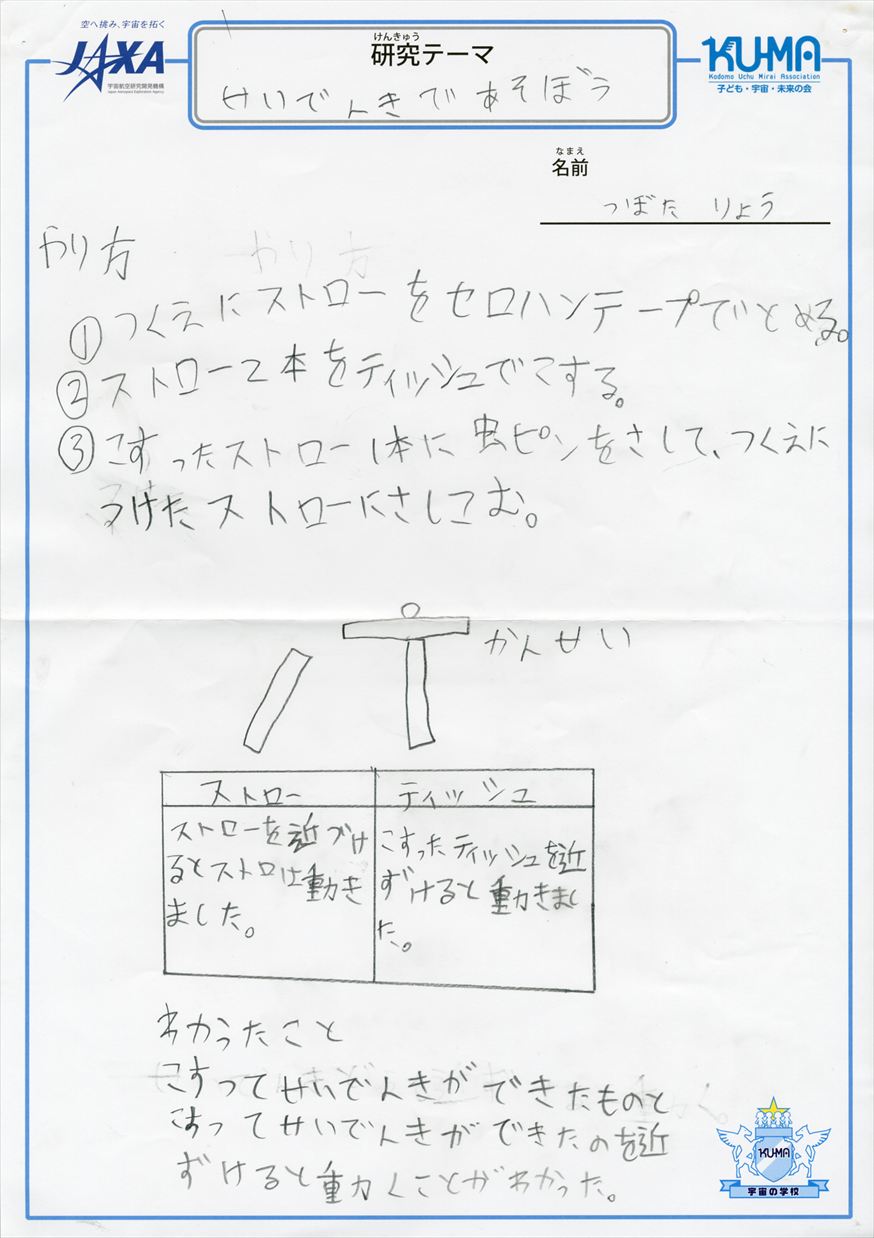 空へ挑み、宇宙を拓く
JAXA
宇宙航空研究開発機構
Japan Aerospace Exploration Agency
けんきゅう
研究テーマ
せいでんきであそぼう
KU-MA
Kodomo Uchu Mirai Association
子ども・宇宙・未来の会
なまえ
名前
つぼた りょう
やり方 やり方
①つくえにストローをセロハンテープでとめる。
②ストロー2本をティッシュでこする。
③こすったストロー1本に虫ピンをさして、つくえに
つけたストローにさしこむ。
かんせい
ストロー ティッシュ
ストローを近づけ
るとストロは動き
ました。
こすったティッシュを近
ずけると動きまし
た。
わかったこと
こすってせいでんきができたものと
こすってせいでんきができたのを近
ずけると動くことがわかった。
KU-MA
宇宙の学校